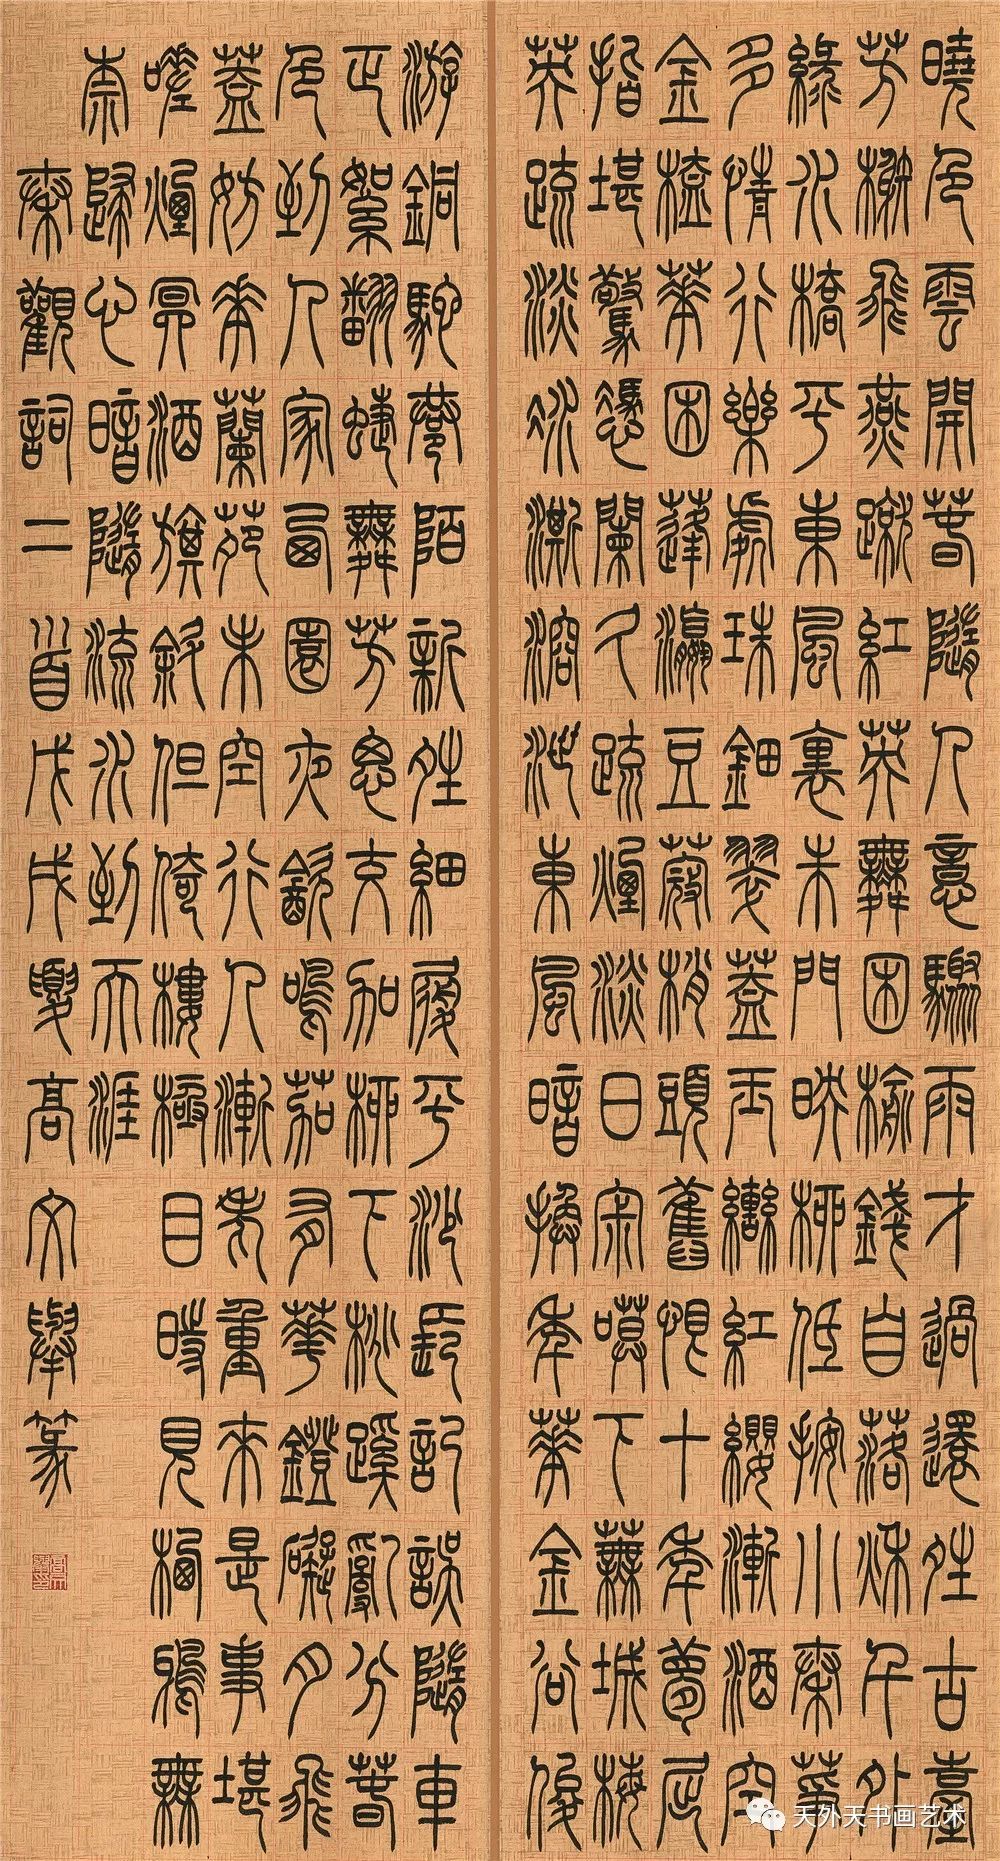 曉色雲開春隨人意驟雨才過還晴古臺
芳榭飛燕蹴紅英舞困榆錢自落秋千外
綠水橋平東風裏朱門映柳低按小秦箏
多情行樂處珠鈿翠蓋玉轡紅纓漸酒空
金榼華困蓬瀛豆蔻梢頭舊恨十年夢屈
指堪驚憑闌久疏煙淡日寂寞下蕪城梅
英疏淡冰澌溶泄東風暗換年華金谷俊
游銅駝巷陌新晴細履平沙長記誤隨車
正絮翻蜨舞芳思交加柳下桃蹊亂分春
色到人家西園夜飲鳴笳有華鐙礙月飛
蓋妨華蘭苑未空行人漸老重來是事堪
嗟煙冥酒旗斜但倚樓極目時見棲鴉無
柰歸心暗隨流水到天涯
秦觀詞二首戊戌夏高文舉篆
天外天书画艺术